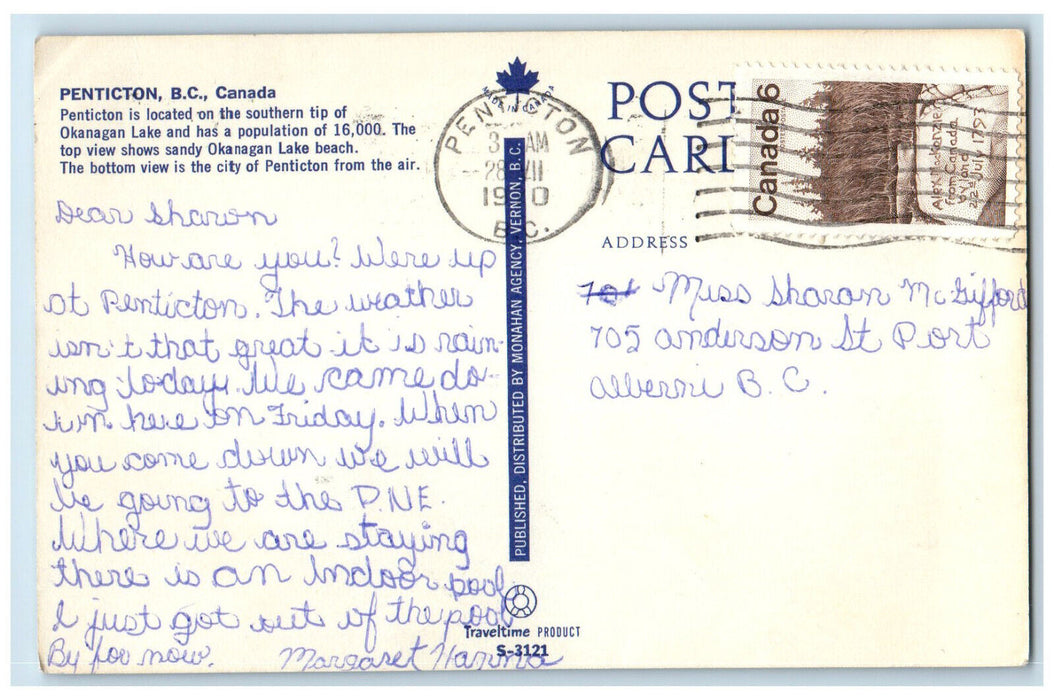 PENTICTON, B.C., Canada
Penticton is located on the southern tip of
Okanagan Lake and has a population of 16,000. The
top view shows sandy Okanagan Lake beach.
The bottom view is the city of Penticton from the air.
Dear Sharon
How are you? Were up
at Penticton. The weather
isn't that great it is rain-
ing today. We came do-
wn here on Friday. When
you come down we will
be going to the P.N.E.
Where we are staying
there is an Indoor pool
I just got out of the pool
By for now. Margaret Hanna
MADE IN CANADA
PENTICTON
AM
28 VII
19 0
B.C.
PUBLISHED, DISTRIBUTED BY MONAHAN AGENCY, VERNON, B.C.
Traveltime PRODUCT
S-3121
POST
CARD
Canada 6
Alex Mackenzie
from Canada
by land
22d July 1793
ADDRESS
701 Miss Sharon McGifford
705 anderson St Port
alberni B.C.